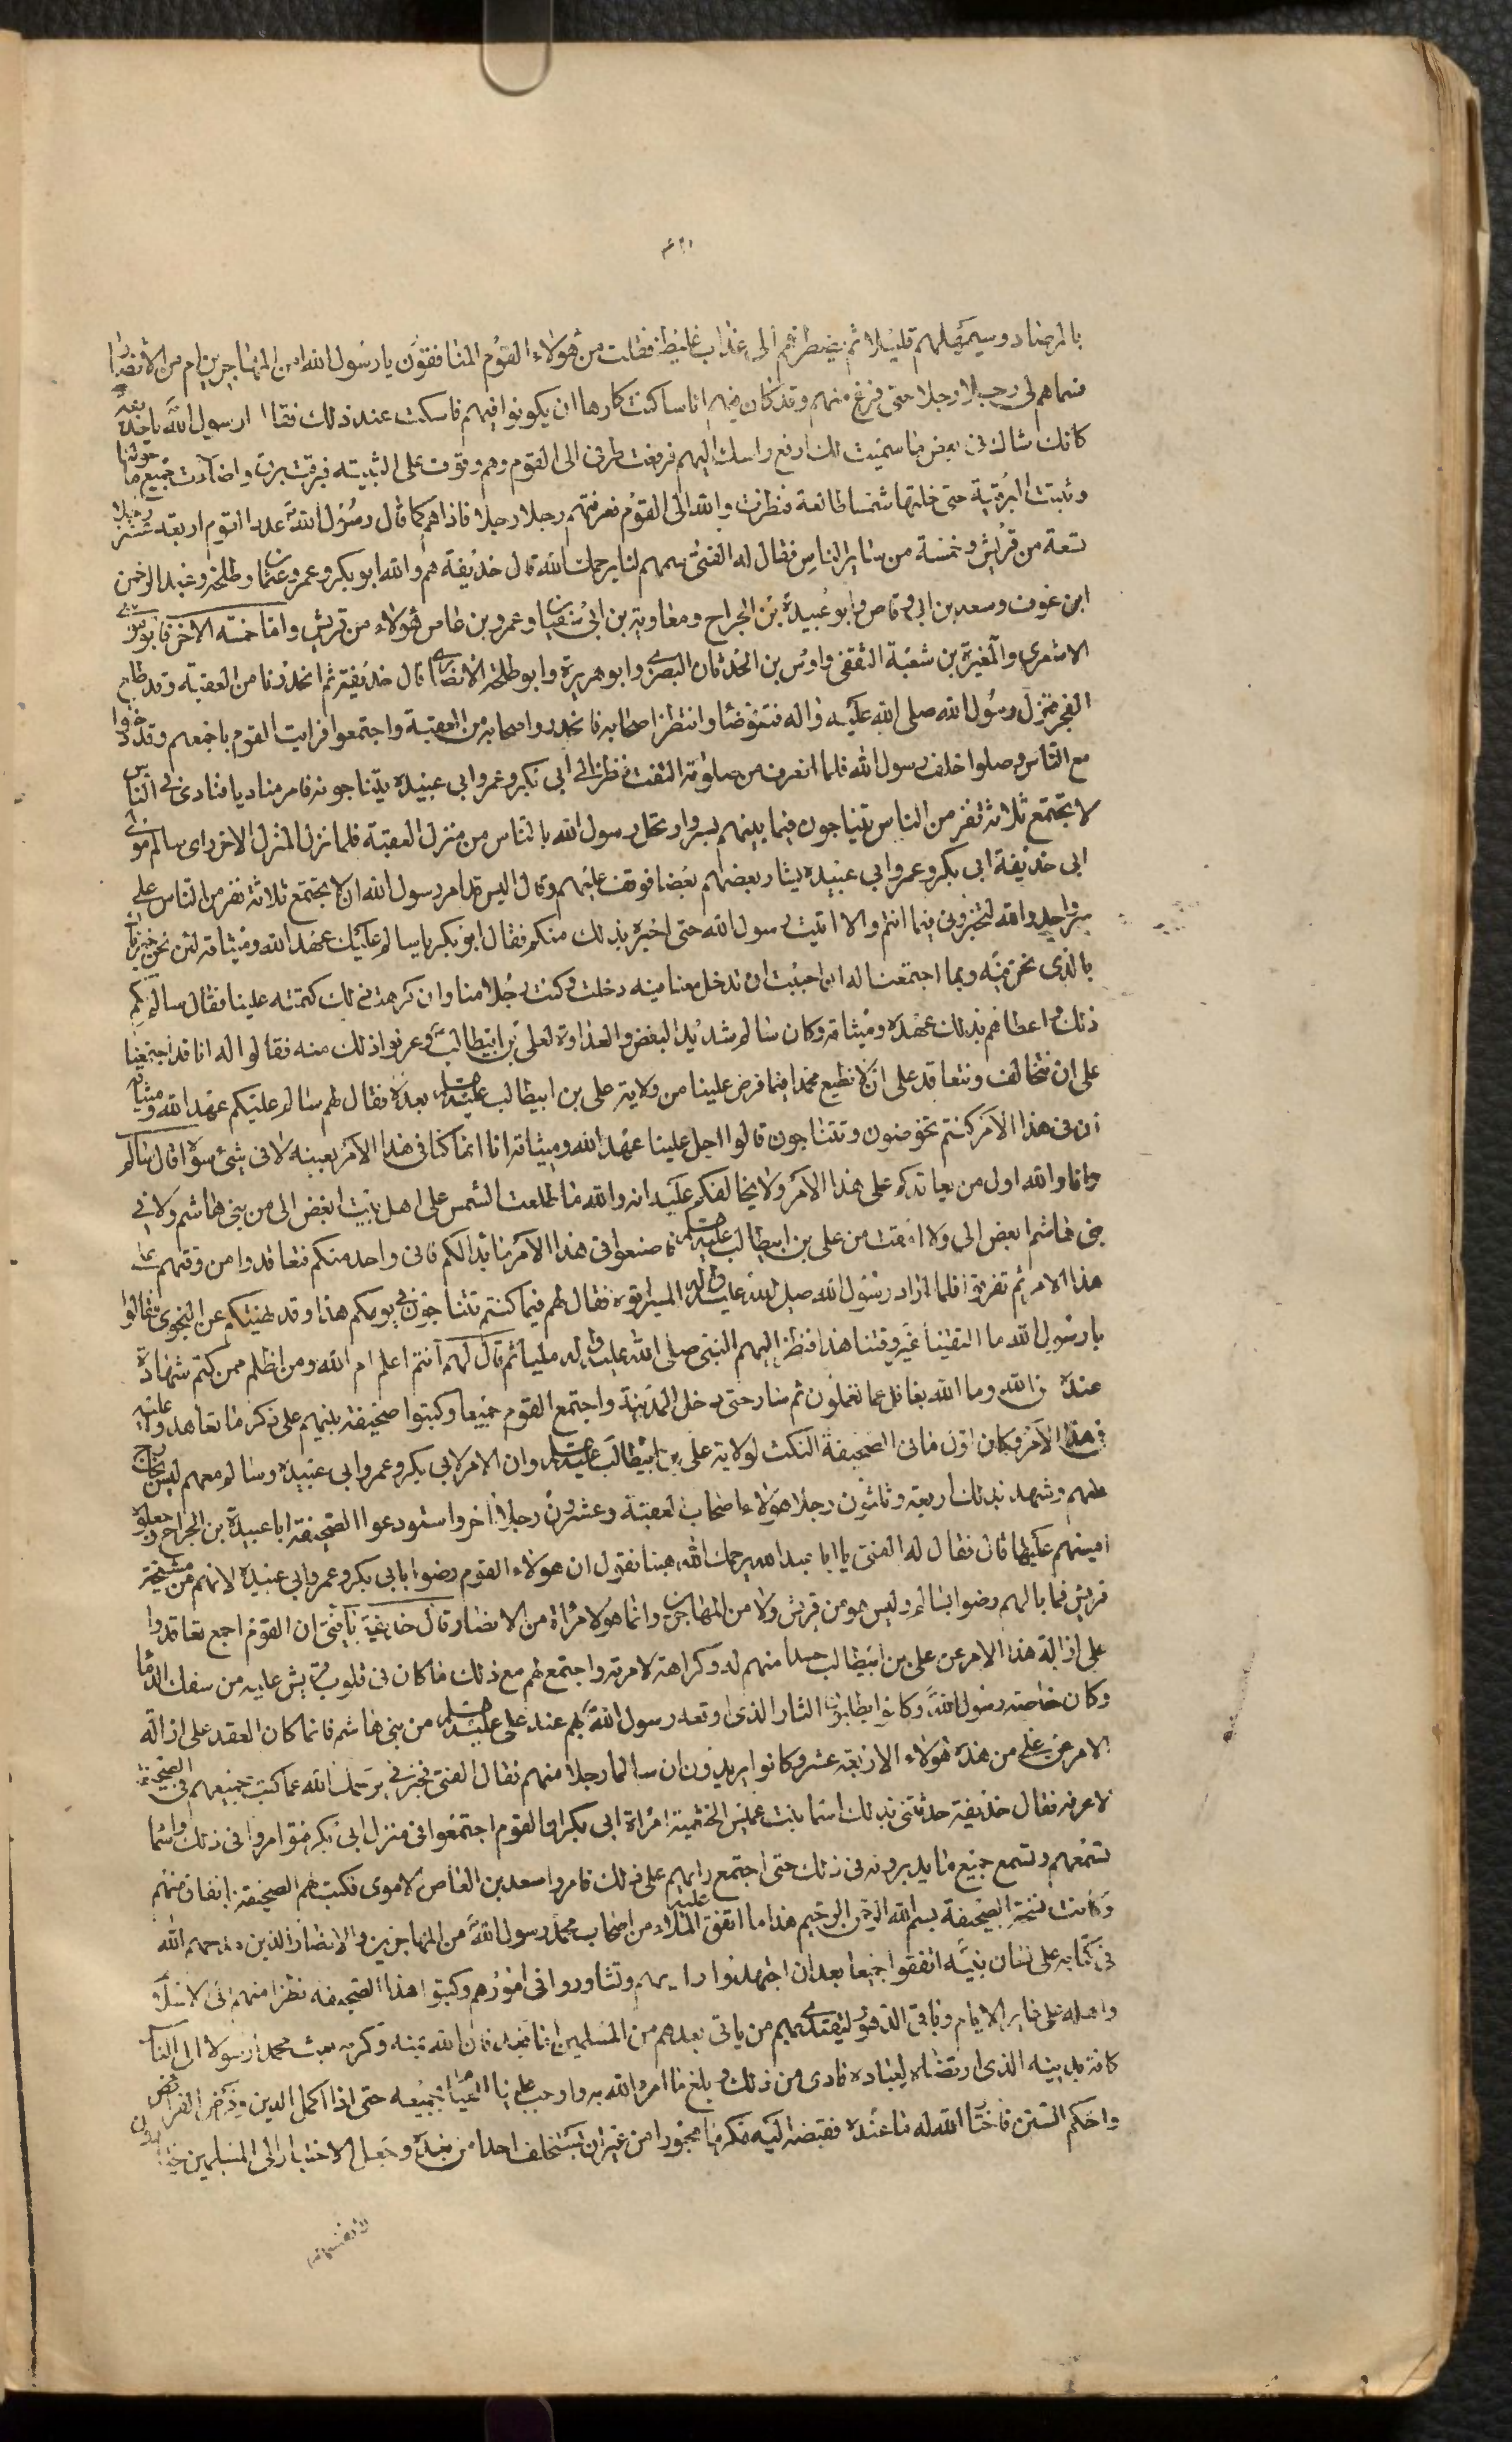 بالمرصاد وسيمهلهم قليلا ثم يضطرهم الى عذاب غليظ فقلت من هؤلاء القوم المنافقون يا رسول الله امن المهاجرين ام من الانصار
فسماهم لي رجلا رجلا حتى فرغ منهم وقد كان فيهم اناسا كنت كارها ان يكونوا فيهم فامسكت عند ذلك فقال رسول الله يا حذيفة
كانك شاك في بعض من سميت لك ارفع راسك اليهم فرفعت طرفي الى القوم وهم وقوف على الثنية فبرقت برقة واضاءت جميع ما حولنا
وثبتت البرقة حتى خلتها شمسا طالعة فنظرت والله الى القوم فعرفتهم رجلا رجلا فاذا هم كما قال رسول الله عدد القوم اربعة عشر رجلا
تسعة من قريش وخمسة من ساير الناس فقال له الفتى سمهم لنا يرحمك الله قال حذيفة هم والله ابو بكر وعمر وعثمان وطلحة وعبد الرحمن
ابن عوف وسعد بن ابي وقاص وابو عبيدة بن الجراح ومعاوية بن ابي سفيان وعمرو بن عاص هؤلاء من قريش واما خمسة الاخر فابو موسى
الاشعري والمغيرة بن شعبة الثقفي واوس بن الحدثان البصري وابو هريرة وابو طلحة الانصاري قال حذيفة ثم انحدرنا من العقبة وقد طلع
الفجر فنزل رسول الله صلى الله عليه واله فتوضا وانتظر اصحابه فانحدروا اصحابه من العقبة واجتمعوا فرايت القوم باجمعهم وقد دخلوا
مع الناس وصلوا خلف رسول الله فلما انصرف من صلوته التفت فنظر الى ابي بكر وعمر وابي عبيدة يتناجون فامر مناديا فنادى في الناس
لا يجتمع ثلاثة نفر من الناس يتناجون فيما بينهم بسر وارتحل رسول الله بالناس من منزل العقبة فلما نزل المنزل الاخر راى سالم مولى
ابي حذيفة ابي بكر وعمر وابي عبيدة يسار بعضهم بعضا فوقف عليهم وقال اليس قد امر رسول الله ان لا يجتمع ثلاثة نفر من الناس على
سر واحد والله لتخبروني فيما انتم والا اتيت رسول الله حتى اخبره بذلك منكم فقال ابو بكر يا سالم عليك عهد الله وميثاقه لئن نحن خبرناك
بالذي نحن فيه وبما اجتمعنا له ان احببت ان تدخل معنا فيه دخلت وكنت رجلا منا وان كرهت ذلك كتمته علينا فقال سالم لكم
ذلك واعطاهم بذلك عهده وميثاقه وكان سالم شديد البغض والعداوة لعلي بن ابيطالب وعرفوا ذلك منه فقالوا له انا قد اجتمعنا
على ان نتحالف ونتعاقد على ان لا نطيع محمدا فيما فرض علينا من ولاية علي بن ابيطالب عليه السلام بعده فقال لهم سالم عليكم عهد الله وميثاقه
ان في هذا الامر كنتم تخوضون وتتناجون قالوا اجل علينا عهد الله وميثاقه انا انما كنا في هذا الامر بعينه لا في شيء سواه قال سالم
وانا والله اول من يعاقدكم على هذا الامر ولا يخالفكم عليه انه والله ما طلعت الشمس على اهل بيت ابغض الي من بني هاشم ولا في
بني هاشم ابغض الي ولا امقت من علي بن ابيطالب عليه السلام فاصنعوا في هذا الامر ما بدا لكم فاني واحد منكم فتعاقدوا من وقتهم على
هذا الامر ثم تفرقوا فلما اراد رسول الله صلى الله عليه واله المسير اتوه فقال لهم فيما كنتم تتناجون في يومكم هذا وقد نهيتكم عن النجوى فقالوا
يا رسول الله ما التقينا غير وقتنا هذا فنظر اليهم النبي صلى الله عليه واله مليا ثم قال لهم أنتم اعلم ام الله ومن اظلم ممن كتم شهادة
عنده من الله وما الله بغافل عما تعملون ثم سار حتى دخل المدينة واجتمع القوم جميعا وكتبوا صحيفة بينهم على ذكر ما تعاهدوا عليه
في هذا الامر وكان اول ما في الصحيفة النكث لولاية علي بن ابيطالب عليه السلام وان الامر لابي بكر وعمر وابي عبيدة وسالم معهم ليس بخارج
عنهم وشهد بذلك اربعة وثلثون رجلا هؤلاء اصحاب العقبة وعشرون رجلا اخر واستودعوا الصحيفة ابا عبيدة بن الجراح وجعلوه
امينهم عليها قال فقال له الفتى يا ابا عبد الله يرحمك الله هبنا نقول ان هؤلاء القوم رضوا بابي بكر وعمر وابي عبيدة لانهم من مشيخة
قريش فما بالهم رضوا بسالم وليس هو من قريش ولا من المهاجرين وانما هو لامراة من الانصار قال حذيفة يا فتى ان القوم اجمع تعاقدوا
على ازالة هذا الامر عن علي بن ابيطالب حسدا منهم له وكراهة لامرته واجتمع لهم مع ذلك ما كان في قلوب قريش عليه من سفك الدماء
وكان خاصة رسول الله وكانوا يطلبون الثار الذي اوقعه رسول الله بهم عند علي عليه السلام من بني هاشم فانما كان العقد على ازالة
الامر عن علي من هذه هؤلاء الاربعة عشر وكانوا يريدون ان سالما رجلا منهم فقال الفتى فخبرني يرحمك الله عما كتب جميعهم في الصحيفة
لاعرفه فقال حذيفة حدثتني بذلك اسما بنت عميس الخثعمية امراة ابي بكر ان القوم اجتمعوا في منزل ابي بكر فتوامروا في ذلك واسما
تسمعهم وتسمع جميع ما يدبرونه في ذلك حتى اجتمع رايهم على ذلك فامروا سعد بن العاص الاموي فكتب لهم الصحيفة باتفاق منهم
وكانت نسخة الصحيفة بسم الله الرحمن الرحيم هذا ما اتفق عليه الملاء من اصحاب محمد رسول الله من المهاجرين والانصار الذين مدحهم الله
في كتابه على لسان نبيه اتفقوا جميعا بعد ان اجتهدوا رايهم وتشاوروا في امورهم وكتبوا هذا الصحيفة نظرا منهم الى الاسلام
واهله على غابر الايام وباقي الدهور ليقتدي بهم من ياتي بعدهم من المسلمين اما بعد فان الله بمنه وكرمه بعث محمدا رسولا الى الناس
كافة بدينه الذي ارتضاه لعباده فادى من ذلك وبلغ ما امره الله به واوجب علينا القيام بجميعه حتى اذا اكمل الدين وفرض الفرائض
واحكم السنن فاختار الله له ما عنده فقبضه اليه مكرما محبورا من غير ان يستخلف احدا من بعده وجعل الاختيار الى المسلمين يختارون
لانفسهم